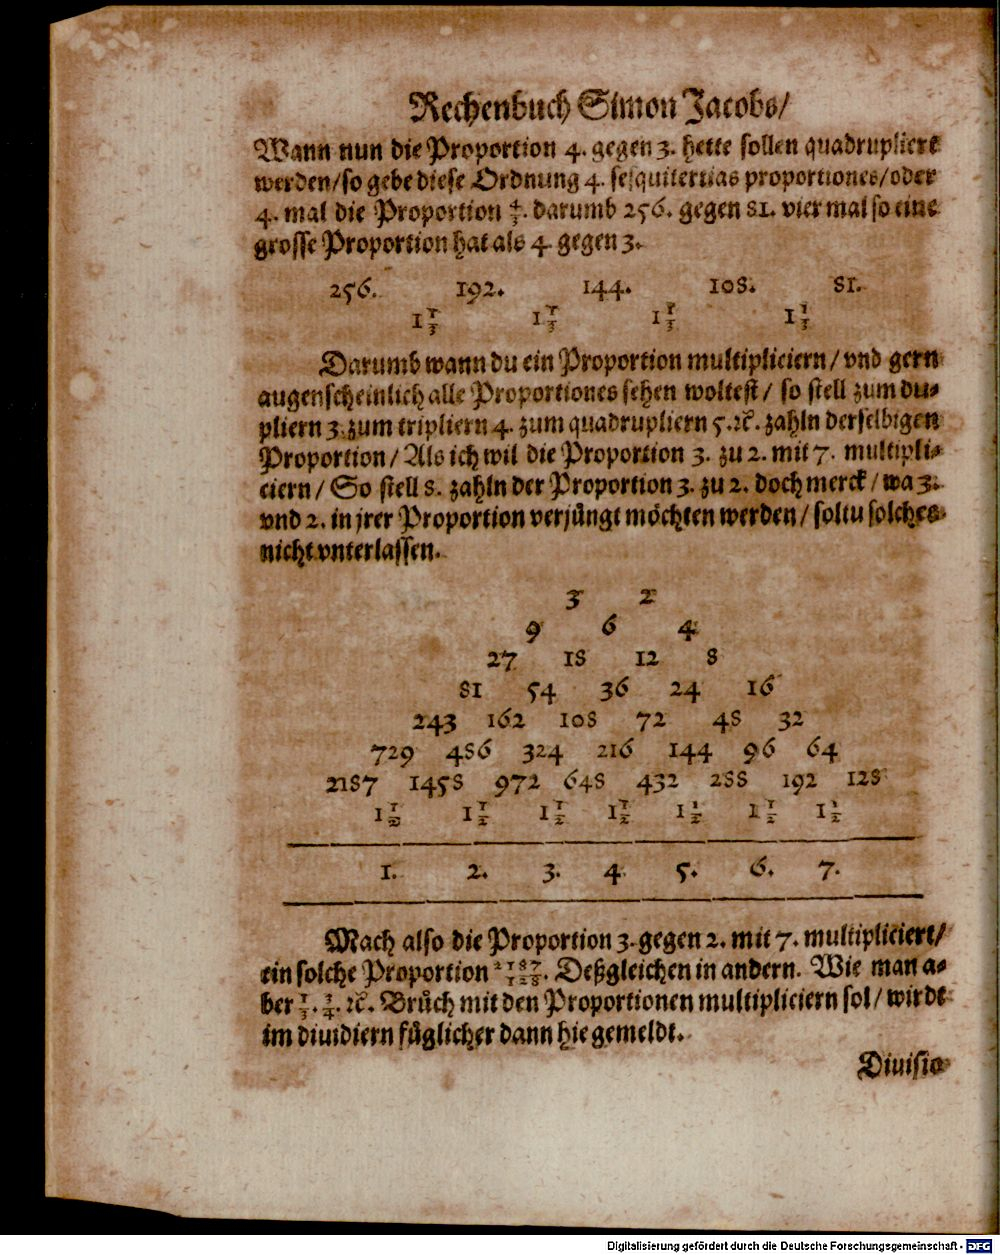 Rechenbuch Simon Jacobs/
Wann nun die Proportion 4. gegen 3. hette sollen quadrupliert
werden/so gebe diese Ordnung 4. sesquitertias proportiones/oder
4. mal die Proportion 4/3. darumb 256. gegen 81. vier mal so eine
grosse Proportion hat als 4 gegen 3.
256. 192. 144. 108. 81.
1 1/3 1 1/3 1 1/3 1 1/3
Darumb wann du ein Proportion multipliciern/ vnd gern
augenscheinlich alle Proportiones sehen woltest/ so stell zum du⸗
pliern 3. zum tripliern 4. zum quadrupliern 5. ꝛc. zahln derselbigen
Proportion/ Als ich wil die Proportion 3. zu 2. mit 7. multipli⸗
ciern/ So stell 8. zahln der Proportion 3. zu 2. doch merck/ wa 3.
vnd 2. in jrer Proportion verjüngt möchten werden/ soltu solches
nicht vnterlassen.
3 2
9 6 4
27 18 12 8
81 54 36 24 16
243 162 108 72 48 32
729 486 324 216 144 96 64
2187 1458 972 648 432 288 192 128
1 1/2 1 1/2 1 1/2 1 1/2 1 1/2 1 1/2 1 1/2
1. 2. 3. 4. 5. 6. 7.
Mach also die Proportion 3. gegen 2. mit 7. multipliciert/
ein solche Proportion 2187/128. Deßgleichen in andern. Wie man a⸗
ber 1/3. 3/4. ꝛc. Brüch mit den Proportionen multipliciern sol/ wirdt
im diuidiern füglicher dann hie gemeldt.
Diuisio
Digitalisierung gefördert durch die Deutsche Forschungsgemeinschaft - DFG